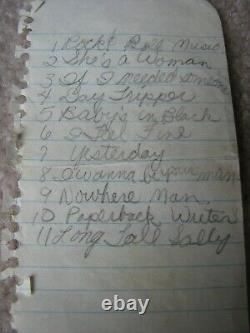 1 Rock & Roll Music
2 She's a Woman
3 If I needed someone
4 Day Tripper
5 Baby's in Black
6 I Feel Fine
7 Yesterday
8 I wanna be your man
9 Nowhere Man
10 Paperback Writer
11 Long Tall Sally